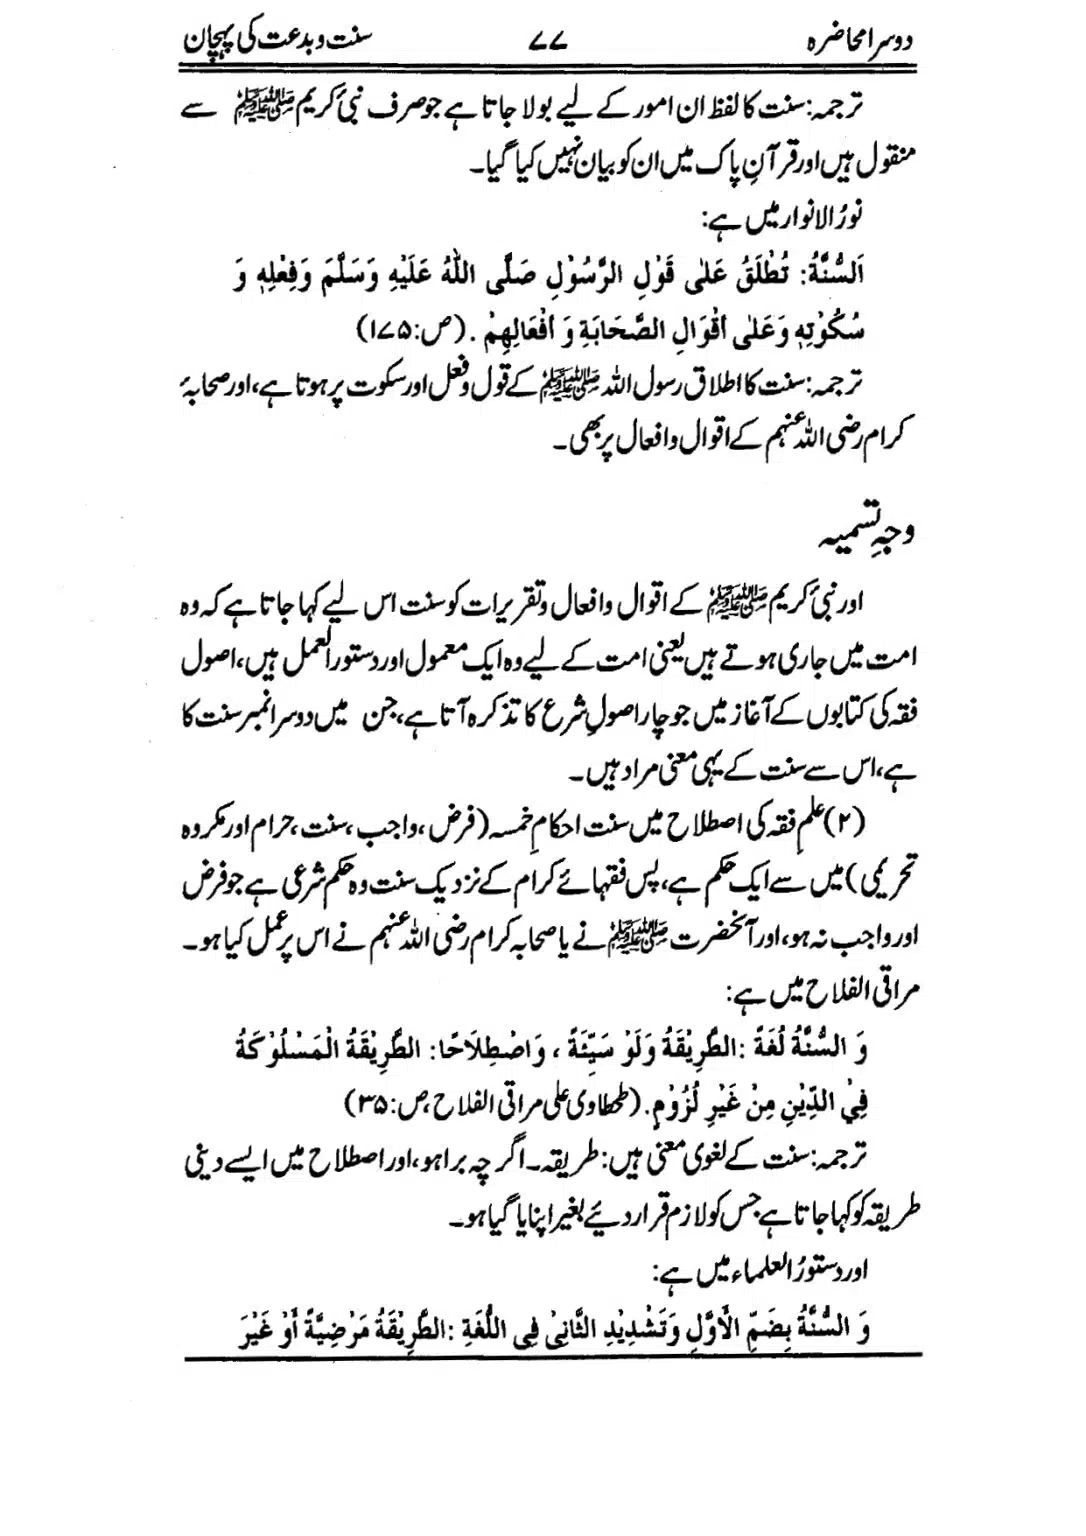 دوسرا محاضرہ ۷۷ سنت و بدعت کی پہچان
ترجمہ: سنت کا لفظ ان امور کے لیے بولا جاتا ہے جو صرف نبیٔ کریم ﷺ سے
منقول ہیں اور قرآنِ پاک میں ان کو بیان نہیں کیا گیا۔
نورُ الانوار میں ہے:
اَلسُّنَّةُ: تُطْلَقُ عَلٰى قَوْلِ الرَّسُوْلِ صَلَّى اللّٰهُ عَلَيْهِ وَسَلَّمَ وَفِعْلِهٖ وَ
سُكُوْتِهٖ وَعَلٰى أَقْوَالِ الصَّحَابَةِ وَ أَفْعَالِهِمْ . (ص: ۱۷۵)
ترجمہ: سنت کا اطلاق رسول اللہ ﷺ کے قول و فعل اور سکوت پر ہوتا ہے، اور صحابۂ
کرام رضی اللہ عنہم کے اقوال و افعال پر بھی۔
وجہِ تسمیہ
اور نبیٔ کریم ﷺ کے اقوال و افعال و تقریرات کو سنت اس لیے کہا جاتا ہے کہ وہ
امت میں جاری ہوتے ہیں یعنی امت کے لیے وہ ایک معمول اور دستورالعمل ہیں، اصول
فقہ کی کتابوں کے آغاز میں جو چار اصولِ شرع کا تذکرہ آتا ہے، جن میں دوسرا نمبر سنت کا
ہے، اس سے سنت کے یہی معنی مراد ہیں۔
(۲) علمِ فقہ کی اصطلاح میں سنت احکامِ خمسہ (فرض، واجب، سنت، حرام اور مکروہ
تحریمی) میں سے ایک حکم ہے، پس فقہائے کرام کے نزدیک سنت وہ حکم شرعی ہے جو فرض
اور واجب نہ ہو، اور آنحضرت ﷺ نے یا صحابہ کرام رضی اللہ عنہم نے اس پر عمل کیا ہو۔
مراقی الفلاح میں ہے:
وَ السُّنَّةُ لُغَةً: الطَّرِيْقَةُ وَلَوْ سَيِّئَةً ، وَاصْطِلَاحًا: الطَّرِيْقَةُ الْمَسْلُوْكَةُ
فِيْ الدِّيْنِ مِنْ غَيْرِ لُزُوْمٍ. (طحطاوی علی مراقی الفلاح، ص: ۳۵)
ترجمہ: سنت کے لغوی معنی ہیں: طریقہ۔ اگرچہ برا ہو، اور اصطلاح میں ایسے دینی
طریقہ کو کہا جاتا ہے جس کو لازم قرار دیئے بغیر اپنایا گیا ہو۔
اور دستورُ العلماء میں ہے:
وَ السُّنَّةُ بِضَمِّ الْأَوَّلِ وَتَشْدِيْدِ الثَّانِيْ فِي اللُّغَةِ: الطَّرِيْقَةُ مَرْضِيَّةً أَوْ غَيْرَ